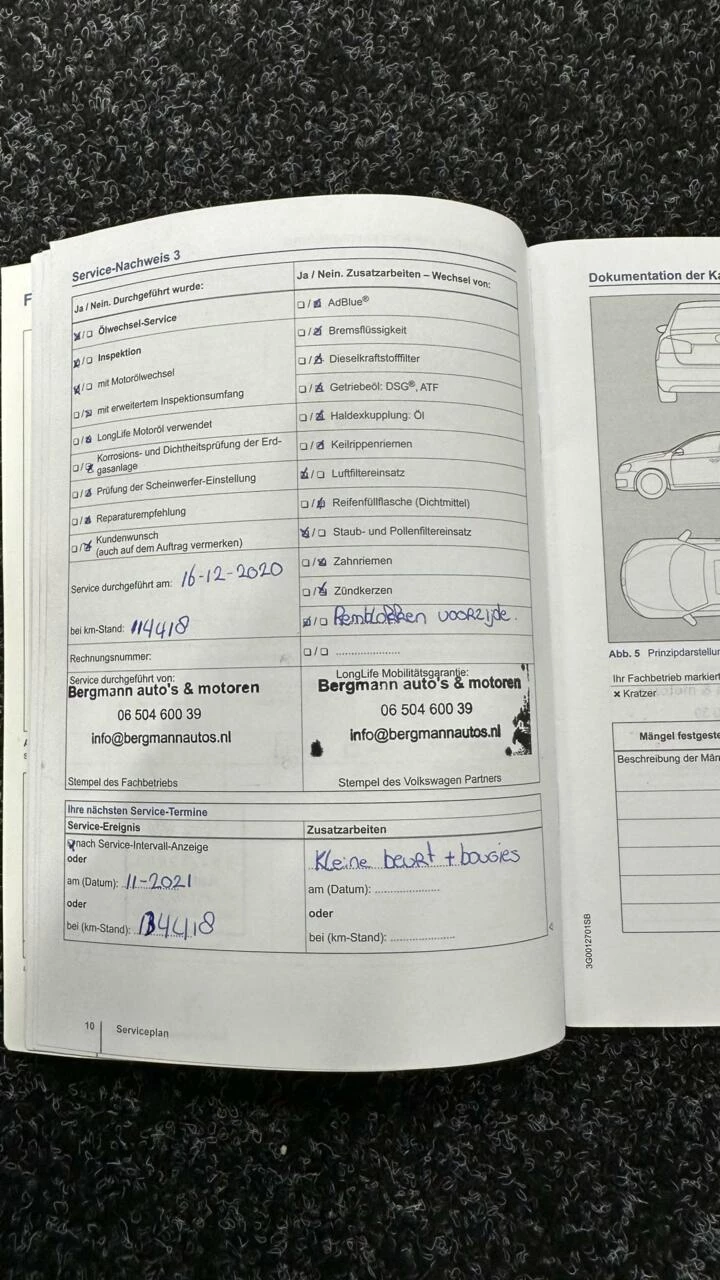 Service-Nachweis 3
Ja / Nein. Durchgeführt wurde:
☒/☐ Ölwechsel-Service
☒/☐ Inspektion
☒/☐ mit Motorölwechsel
☐/☒ mit erweitertem Inspektionsumfang
☐/☒ LongLife Motoröl verwendet
☐/☒ Korrosions- und Dichtheitsprüfung der Erd-
gasanlage
☐/☒ Prüfung der Scheinwerfer-Einstellung
☐/☒ Reparaturempfehlung
☐/☒ Kundenwunsch
(auch auf dem Auftrag vermerken)
Service durchgeführt am: 16-12-2020
bei km-Stand: 114418
Rechnungsnummer:
Service durchgeführt von:
Bergmann auto's & motoren
06 504 600 39
info@bergmannautos.nl
Stempel des Fachbetriebs
Ja / Nein. Zusatzarbeiten – Wechsel von:
☐/☒ AdBlue®
☐/☒ Bremsflüssigkeit
☐/☒ Dieselkraftstofffilter
☐/☒ Getriebeöl: DSG®, ATF
☐/☒ Haldexkupplung: Öl
☐/☒ Keilrippenriemen
☒/☐ Luftfiltereinsatz
☐/☒ Reifenfüllflasche (Dichtmittel)
☒/☐ Staub- und Pollenfiltereinsatz
☐/☒ Zahnriemen
☐/☒ Zündkerzen
☒/☐ Remblokken voorzijde.
☐/☐ ....................
LongLife Mobilitätsgarantie:
Bergmann auto's & motoren
06 504 600 39
info@bergmannautos.nl
Stempel des Volkswagen Partners
Ihre nächsten Service-Termine
Service-Ereignis
nach Service-Intervall-Anzeige
oder
am (Datum): 11-2021
oder
bei (km-Stand): 134418
Zusatzarbeiten
Kleine beurt + bougies
am (Datum): ....................
oder
bei (km-Stand): ....................
10 Serviceplan
Dokumentation der Ka
Abb. 5 Prinzipdarstellur
Ihr Fachbetrieb markiert
× Kratzer
Mängel festgeste
Beschreibung der Män
3G0012701SB